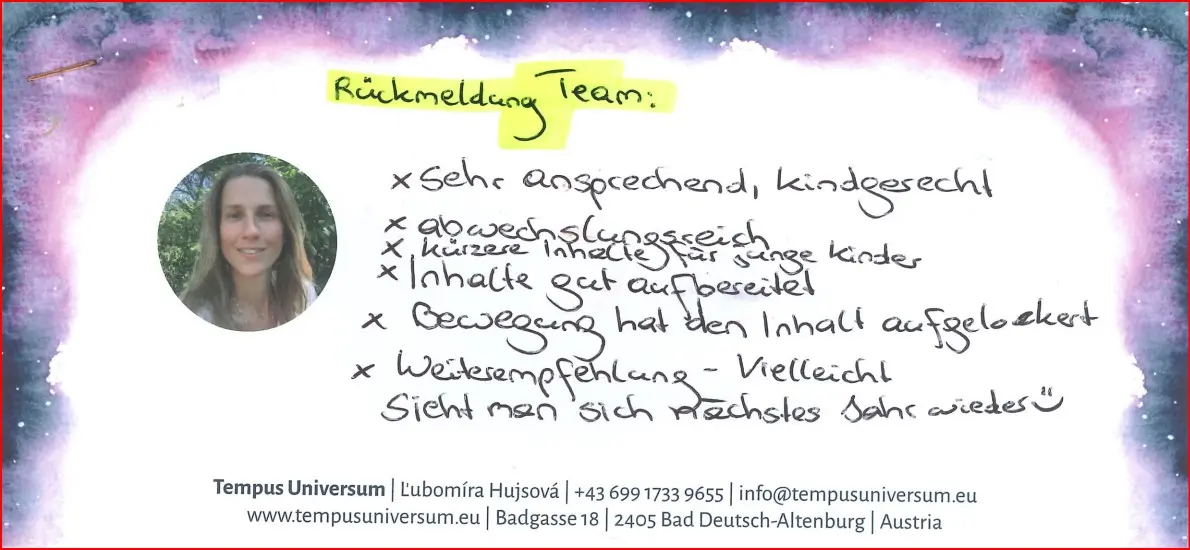 Rückmeldung Team:
x Sehr ansprechend, kindgerecht
x abwechslungsreich
x kürzere Inhalte für junge Kinder
x Inhalte gut aufbereitet
x Bewegung hat den Inhalt aufgelockert
x Weiterempfehlung - Vielleicht
Sieht man sich nächstes Jahr wieder
Tempus Universum | Ľubomíra Hujsová | +43 699 1733 9655 | info@tempusuniversum.eu
www.tempusuniversum.eu | Badgasse 18 | 2405 Bad Deutsch-Altenburg | Austria